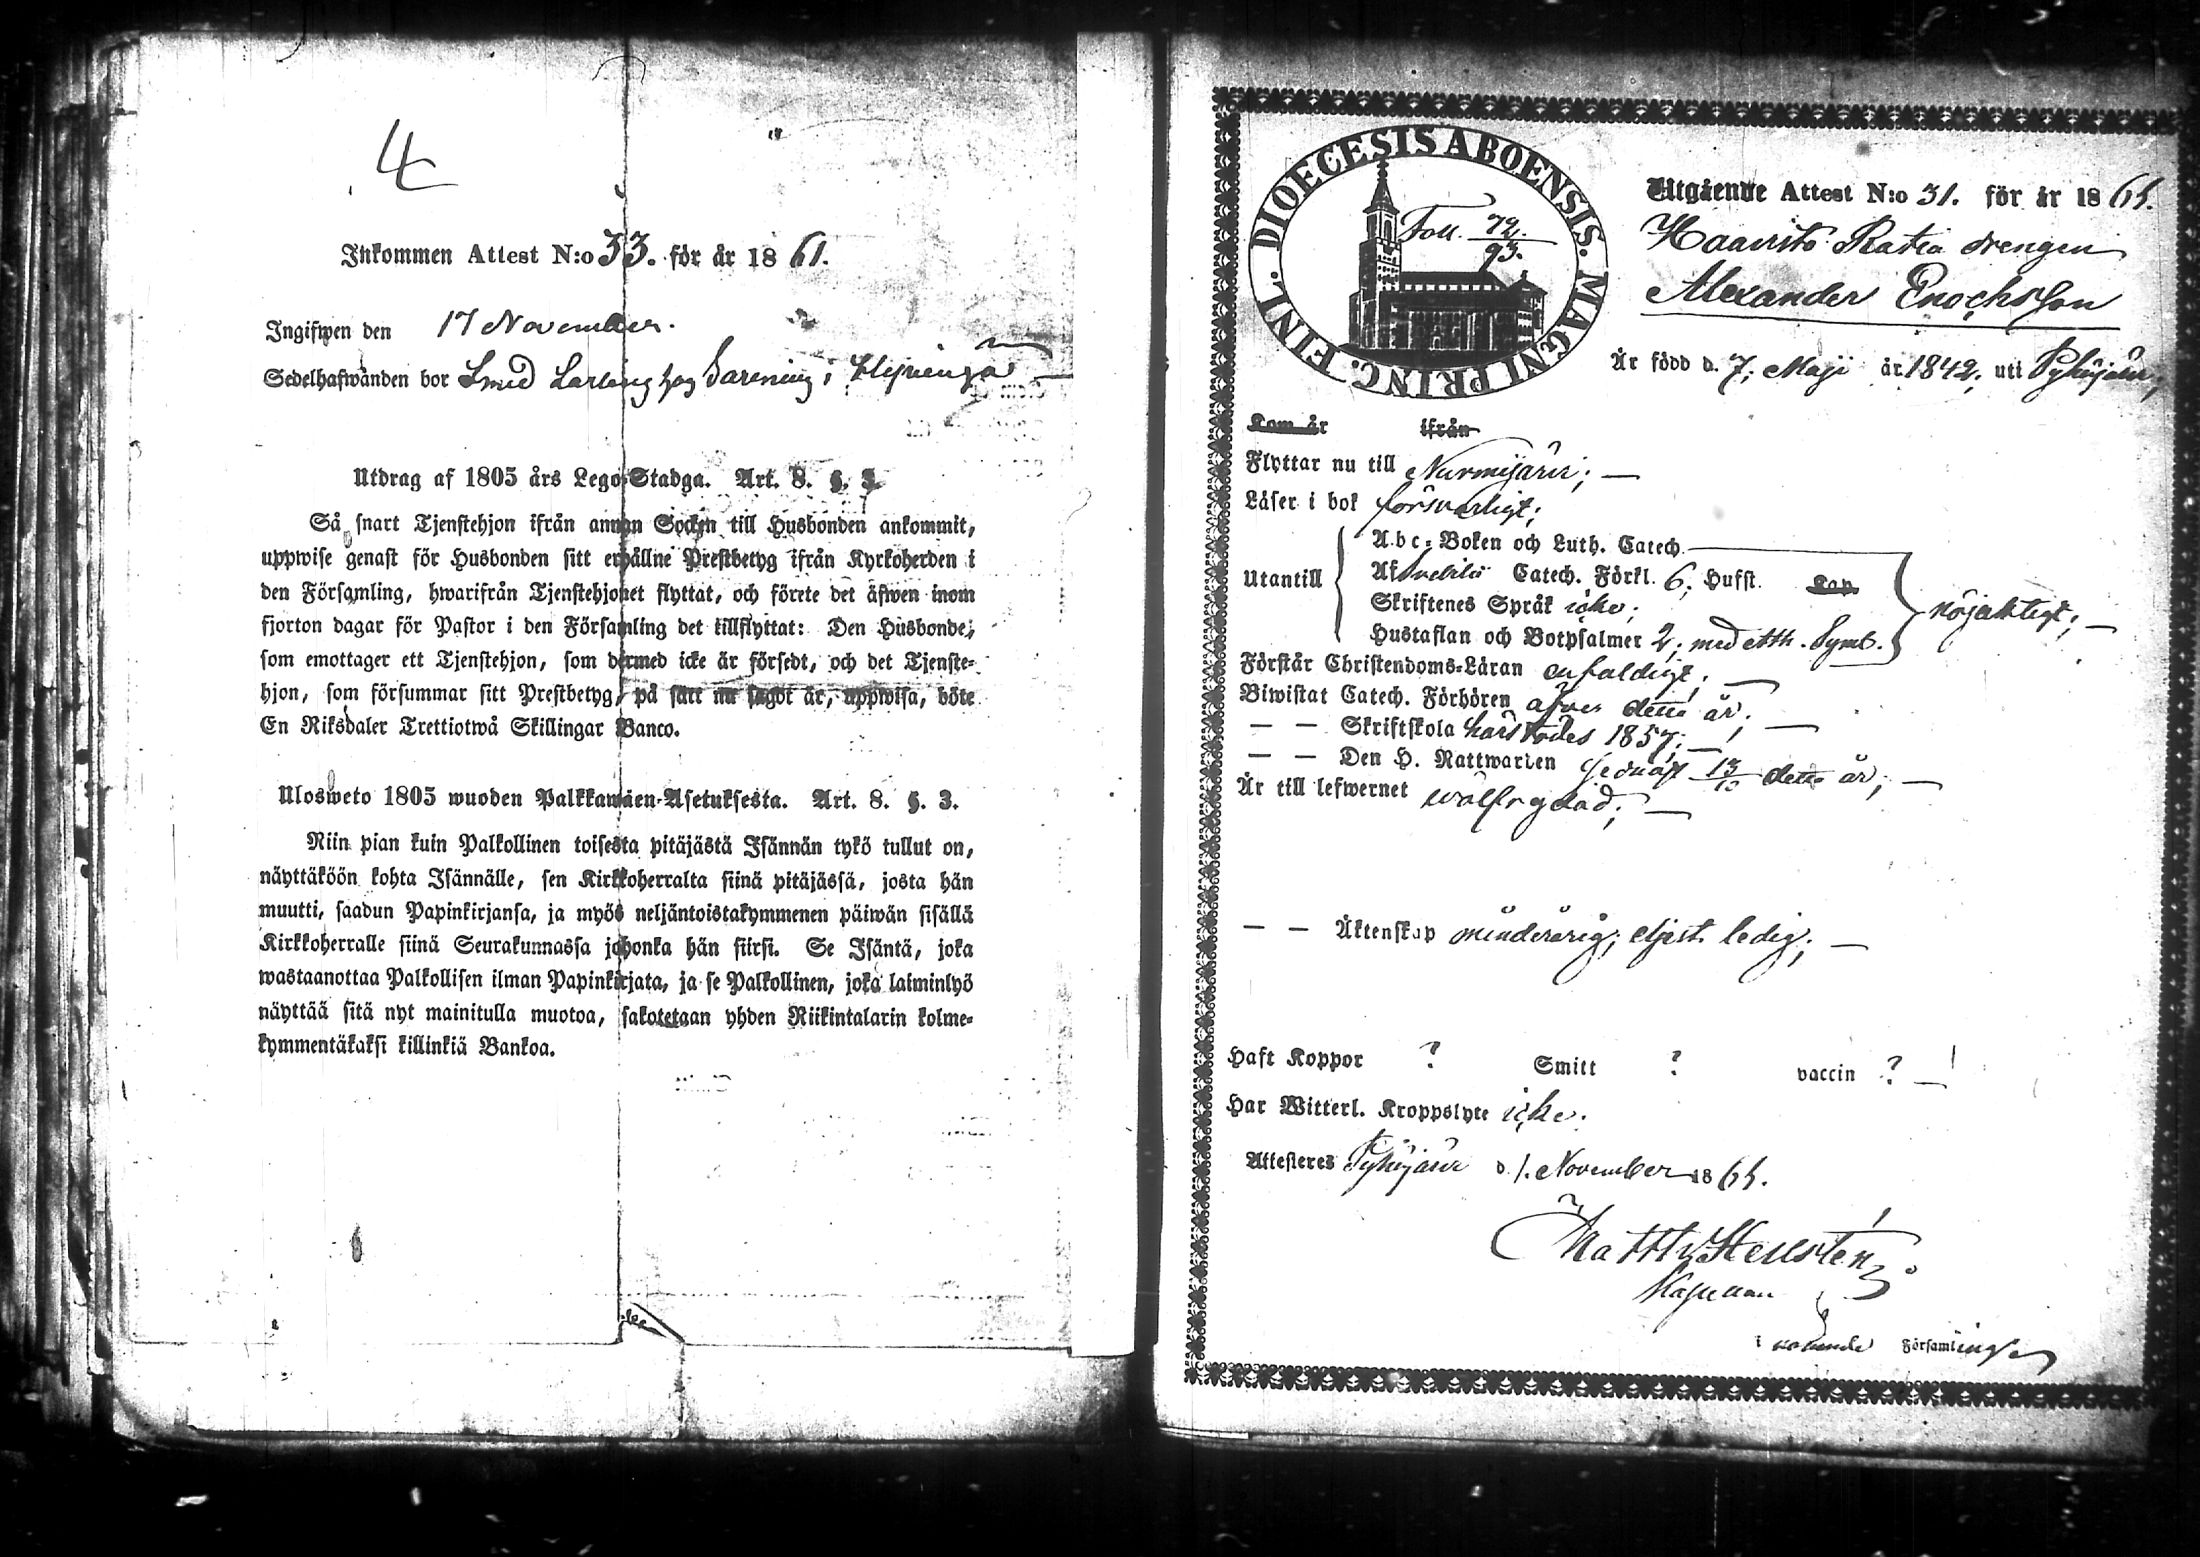 4
Inkommen Attest N:o 33. för år 1861.
Ingifwen den 17 November.
Sedelhafwanden bor Smed Lärling hos i
Utdrag af 1805 års Lego-Stadga. Art. 8. §. 3.
Så snart Tjenstehjon ifrån annan Socken till Husbonden ankommit,
uppwise genast för Husbonden sitt erhållne Prestbetyg ifrån Kyrkoherden i
den Församling, hwarifrån Tjenstehjonet flyttat, och förete det äfwen inom
fjorton dagar för Pastor i den Församling det tillflyttat: Den Husbonde,
som emottager ett Tjenstehjon, som dermed icke är försedt, och det Tjenste-
hjon, som försummar sitt Prestbetyg, på sätt nu sagdt är, uppwisa, böte
En Riksdaler Trettiotwå Skillingar Banco.
Ulosweto 1805 wuoden Palkkawäen-Asetuksesta. Art. 8. §. 3.
Niin pian kuin Palkollinen toisesta pitäjästä Isännän tykö tullut on,
näyttäköön kohta Isännälle, sen Kirkkoherralta siinä pitäjässä, josta hän
muutti, saadun Papinkirjansa, ja myös neljäntoistakymmenen päiwän sisällä
Kirkkoherralle siinä Seurakunnassa johonka hän siirsi. Se Isäntä, joka
wastaanottaa Palkollisen ilman Papinkirjata, ja se Palkollinen, joka laiminlyö
näyttää sitä nyt mainitulla muotoa, sakotetaan yhden Riikintalarin kolme-
kymmentäkaksi killinkiä Bankoa.
DIOECESIS ABOENSIS. MAGNI PRINC. FINL.
Foll. 72.
93.
Utgående Attest N:o 31. för år 1861.
Haavisto Ratia drengen
Alexander Enochsson
Är född d. 7. Maji år 1842. uti Pyhäjärvi,
Kom år ifrån
Flyttar nu till Nurmijärvi; —
Läser i bok försvarligt;
Utantill
A-b-c-Boken och Luth. Catech.
Af Svebilii Catech. Förkl. 6. Hufst. Kap.
Skriftenes Språk icke;
Hustaflan och Botpsalmer 2. med Ath. Symb.
nöjaktigt; —
Förstår Christendoms-Läran enfaldigt; —
Biwistat Catech. Förhören äfven detta år; —
— — Skriftskola härstädes 1857; —
— — Den H. Nattwarden sednast 13/10 detta år; —
Är till lefwernet wälfrägdad; —
— — Äktenskap minderårig; ledig; —
Haft Koppor ? Smitt ? vaccin ? —
Har Witterl. Kroppslyte icke.
Attesteres Pyhäjärvi d. 1. November 1861.
Matth. Hellstén
Kapellan
i Församlingen